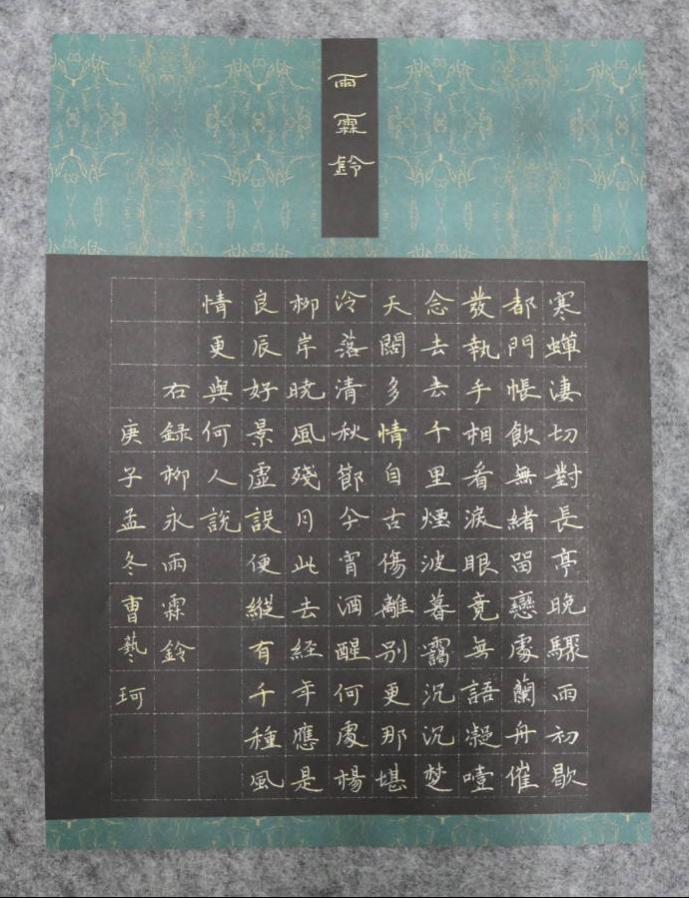 雨霖鈴
寒蟬淒切對長亭晚驟雨初歇
都門帳飲無緒留戀處蘭舟催
發執手相看淚眼竟無語凝噎
念去去千里煙波暮靄沉沉楚
天闊多情自古傷離別更那堪
冷落清秋節今宵酒醒何處楊
柳岸曉風殘月此去経年應是
良辰好景虛設便縱有千種風
情更與何人說
右錄柳永雨霖鈴
庚子孟冬曹藝珂